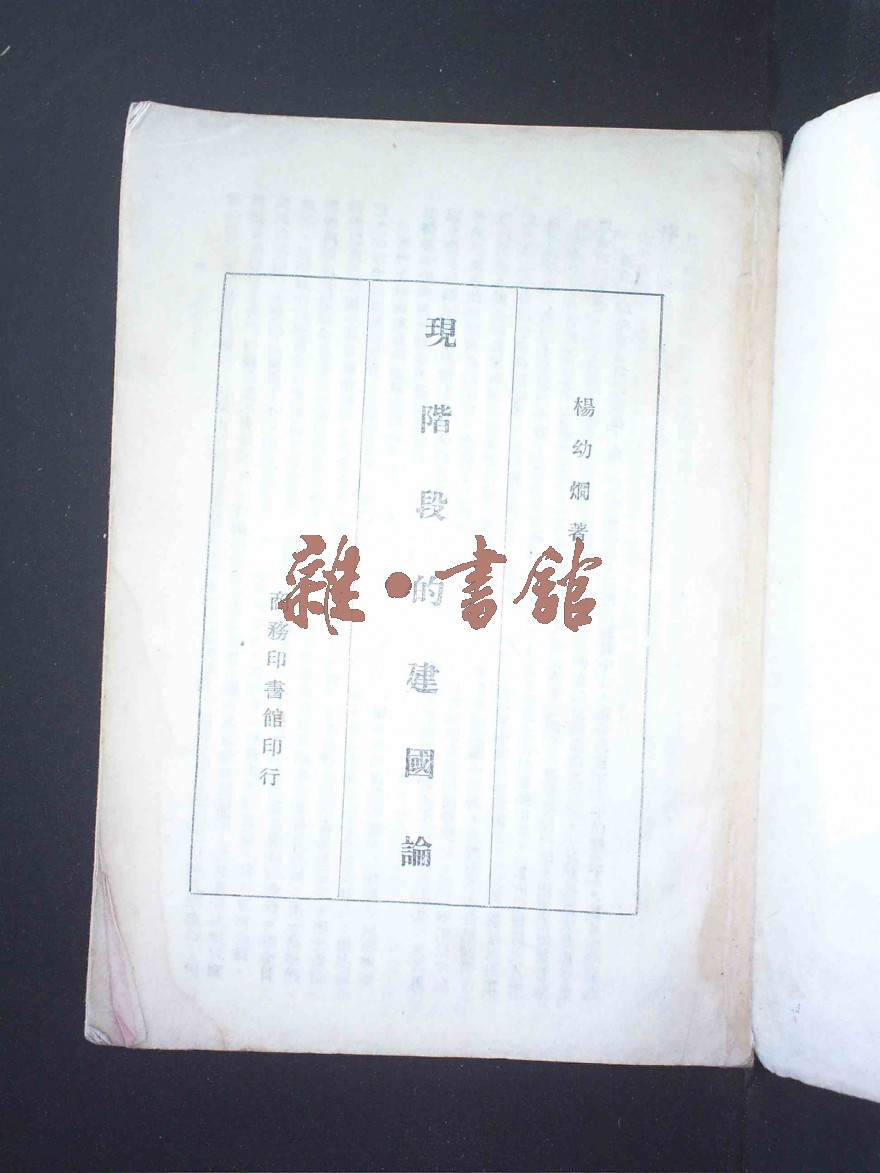 楊幼烱著
現階段的建國論
商務印書館印行
雜•書館